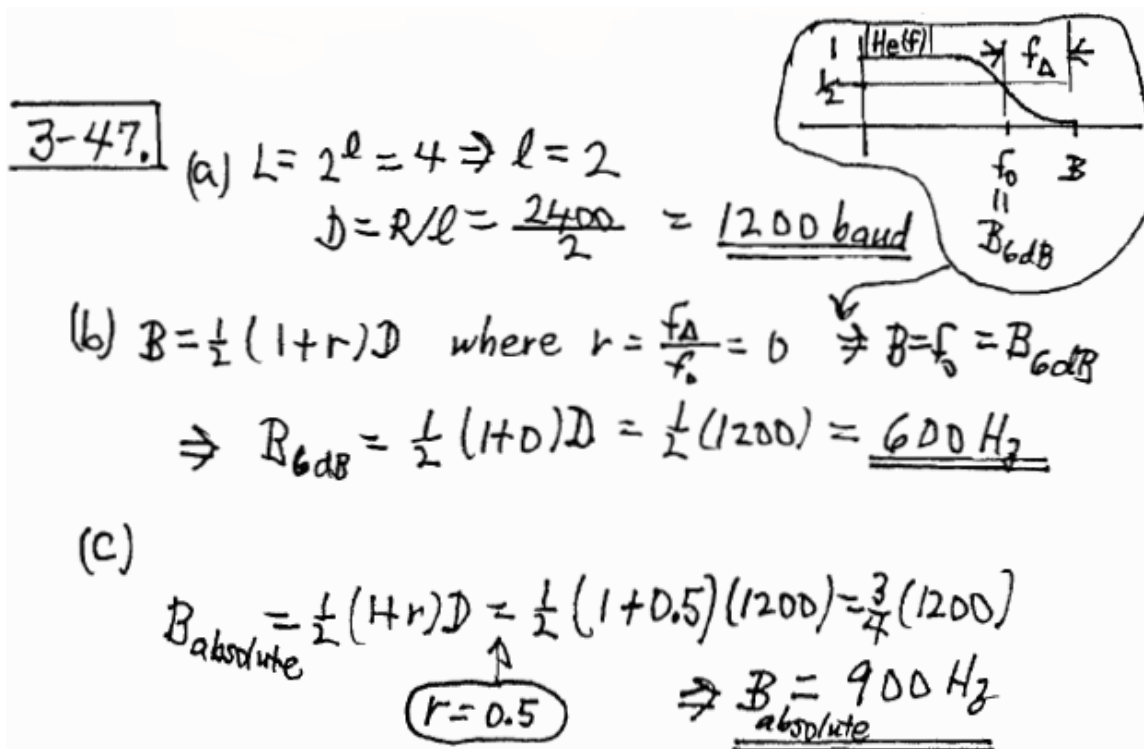 3-47.
(a) L = 2^l = 4 ⇒ l = 2
D = R/l = 2400/2 = 1200 baud
1 |He(f)| f_Δ
1/2
f_0 B
||
B_6dB
(b) B = 1/2 (1+r)D where r = f_Δ/f_0 = 0 ⇒ B = f_0 = B_6dB
⇒ B_6dB = 1/2 (1+0)D = 1/2 (1200) = 600 Hz
(c)
B_absolute = 1/2 (1+r)D = 1/2 (1+0.5)(1200) = 3/4 (1200)
r = 0.5
⇒ B_absolute = 900 Hz